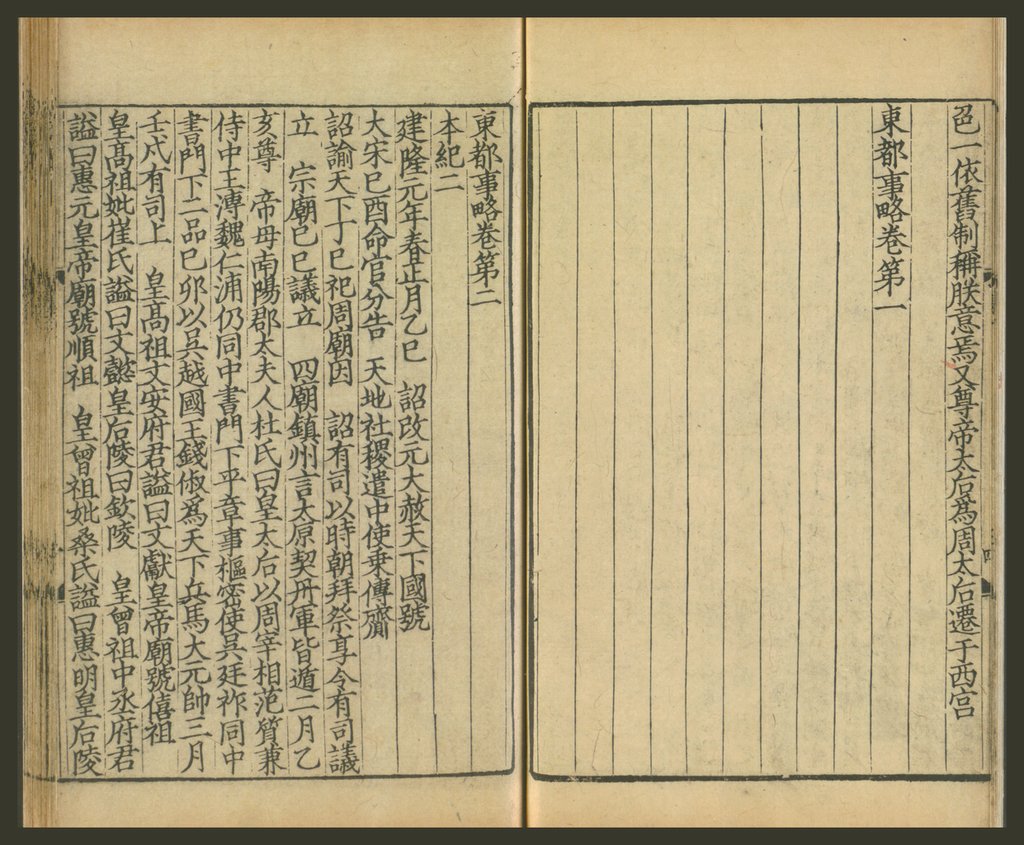 色一依舊制稱朕意焉又尊帝太后爲周太后遷于西宫
東都事略卷第一
東都事略卷第二
本紀二
建隆元年春正月乙巳　詔改元大赦天下國號
大宋巳酉命官分告　天地社稷遣中使乗傳齎
詔諭天下丁巳祀周廟因　詔有司以時朝拜祭享令有司議
立　宗廟巳巳議立　四廟鎮州言太原契丹軍皆遁二月乙
亥尊　帝母南陽郡太夫人杜氏曰皇太后以周宰相范質兼
侍中王溥魏仁浦仍同中書門下平章事樞密使吳廷祚同中
書門下二品巳卯以吳越國王錢俶爲天下兵馬大元帥三月
壬戌有司上　皇高祖文安府君謚曰文獻皇帝廟號僖祖
皇髙祖妣崔氏謚曰文懿皇后陵曰欽陵　皇曾祖中丞府君
謚曰惠元皇帝廟號順祖　皇曾祖妣桑氏謚曰惠明皇后陵
四